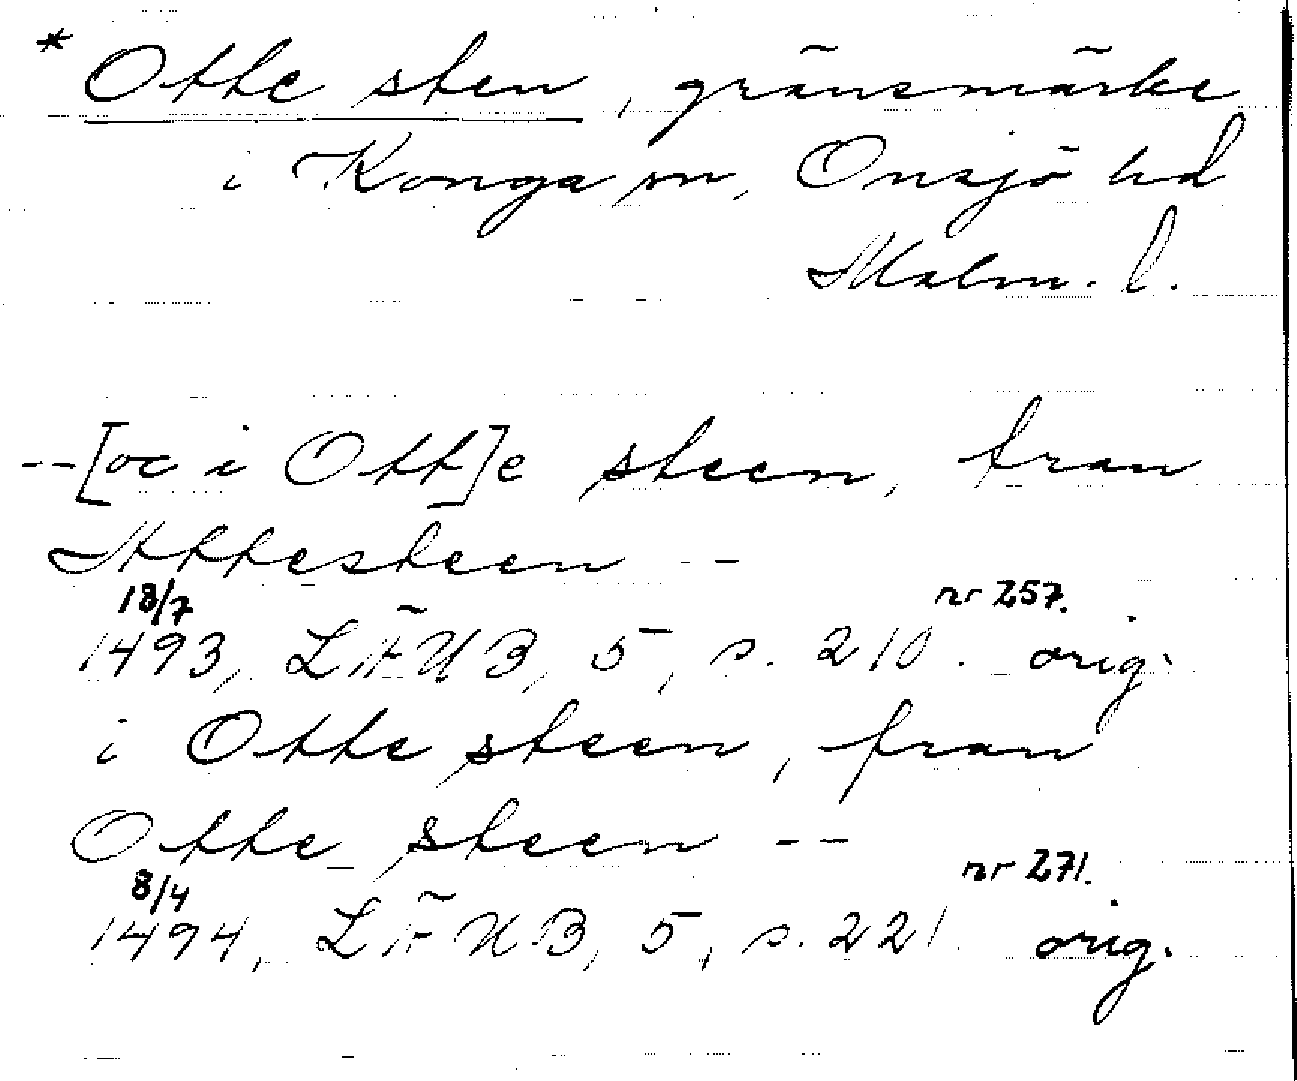 * Otte sten, gränsmärke
i Konga sn, Onsjö hd
Malm. l.
--[oc i Ott]e steen, fran
Ottesteen --
18/7 nr 257.
1493, LÄUB, 5, s. 210. orig.
i Otte steen, fran
Otte steen --
8/4 nr 271.
1494, LÄUB, 5, s. 221. orig.